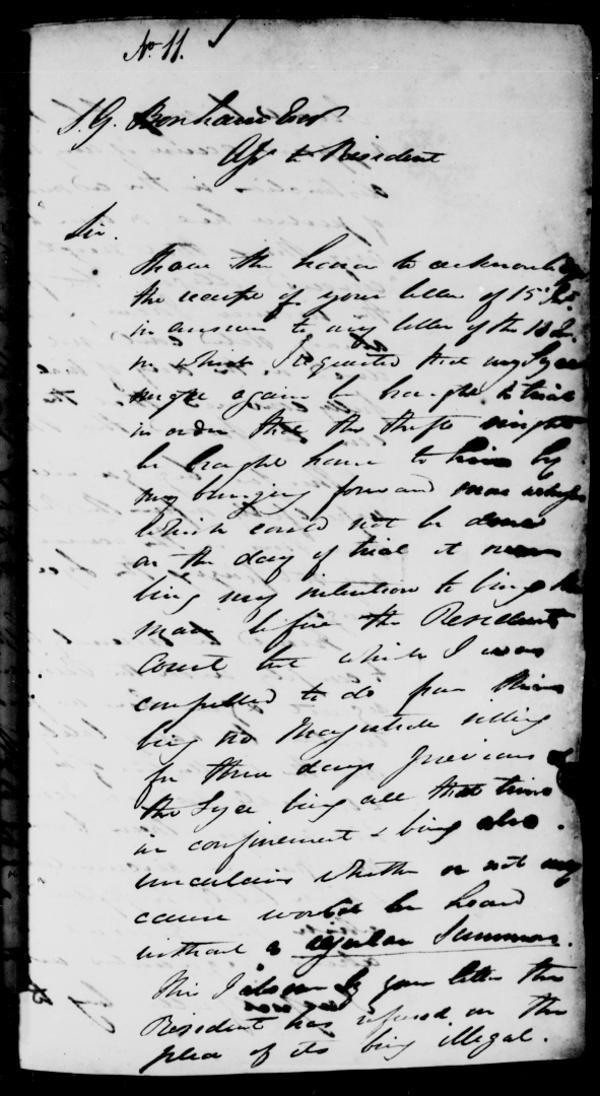 No. 11.
S. G. Bonham Esqr
Asst to Resident
Sir.
I have the honor to acknowledge
the receipt of your letter of 15th
in answer to my letter of the 13
in which I requested that my Syce
might again be brought to trial
in order that the theft might
be brought home to him by
my bringing forward more
which could not be done
on the day of trial it never
being my intention to bring the
man before the Residents
Court but which I was
compelled to do from there
being no Magistrate sitting
for three days previous &
the Syce being all that time
in confinement & being also
uncertain whether or not my
cause would be heard
without a regular Summons.
This I observe by your letter the
Resident has refused on the
plea of its being illegal.